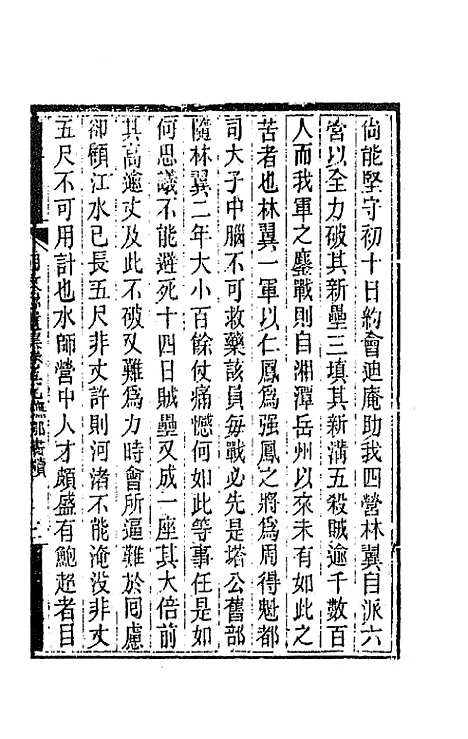 尙能堅守初十日約會迪庵助我四營林翼自派六
營以全力破其新壘三塡其新溝五殺賊逾千數百
人而我軍之鏖戰則自湘潭岳州以來未有如此之
苦者也林翼一軍以仁鳳爲强鳳之將爲周得魁都
司大子中腦不可救藥該員每戰必先是塔公舊部
隨林翼二年大小百餘仗痛憾何如此等事任是如
何思議不能避死十四日賊壘又成一座其大倍前
其高逾丈及此不破又難爲力時會所逼難於囘慮
卻顧江水已長五尺非丈許則河渚不能淹沒非丈
五尺不可用計也水師營中人才頗盛有鮑超者目